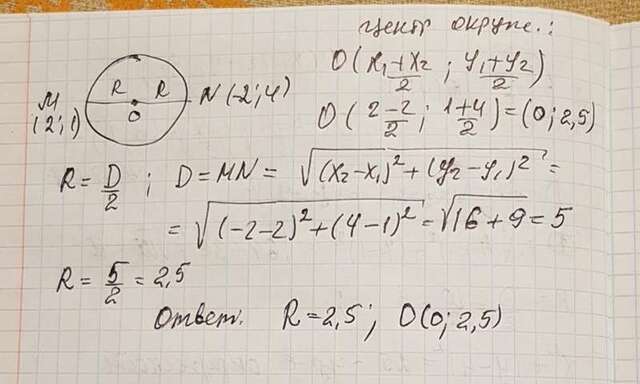 центр окруж.:
O(x₁+x₂/2 ; y₁+y₂/2)
M (2;1) R R O N(-2;4)
O(2-2/2 ; 1+4/2) = (0; 2,5)
R = D/2 ; D = MN = √(x₂-x₁)² + (y₂-y₁)² =
= √(-2-2)² + (4-1)² = √16+9 = 5
R = 5/2 = 2,5
Ответ. R = 2,5 ; O(0; 2,5)